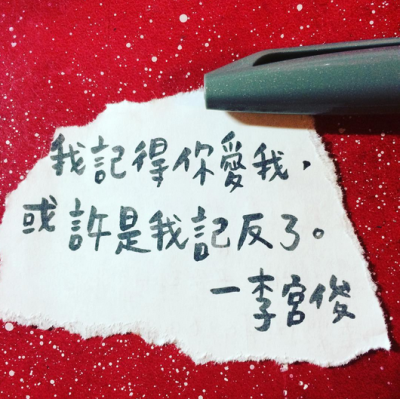 我記得你愛我，
或許是我記反了。
—李宮俊